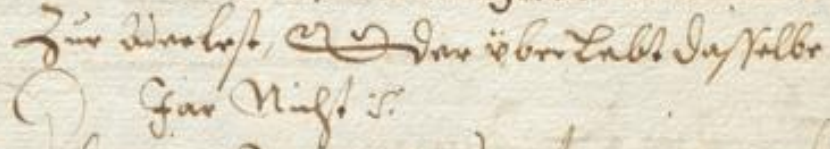 Zur Aderlest, der überlebt dasselbe
Jar Nicht